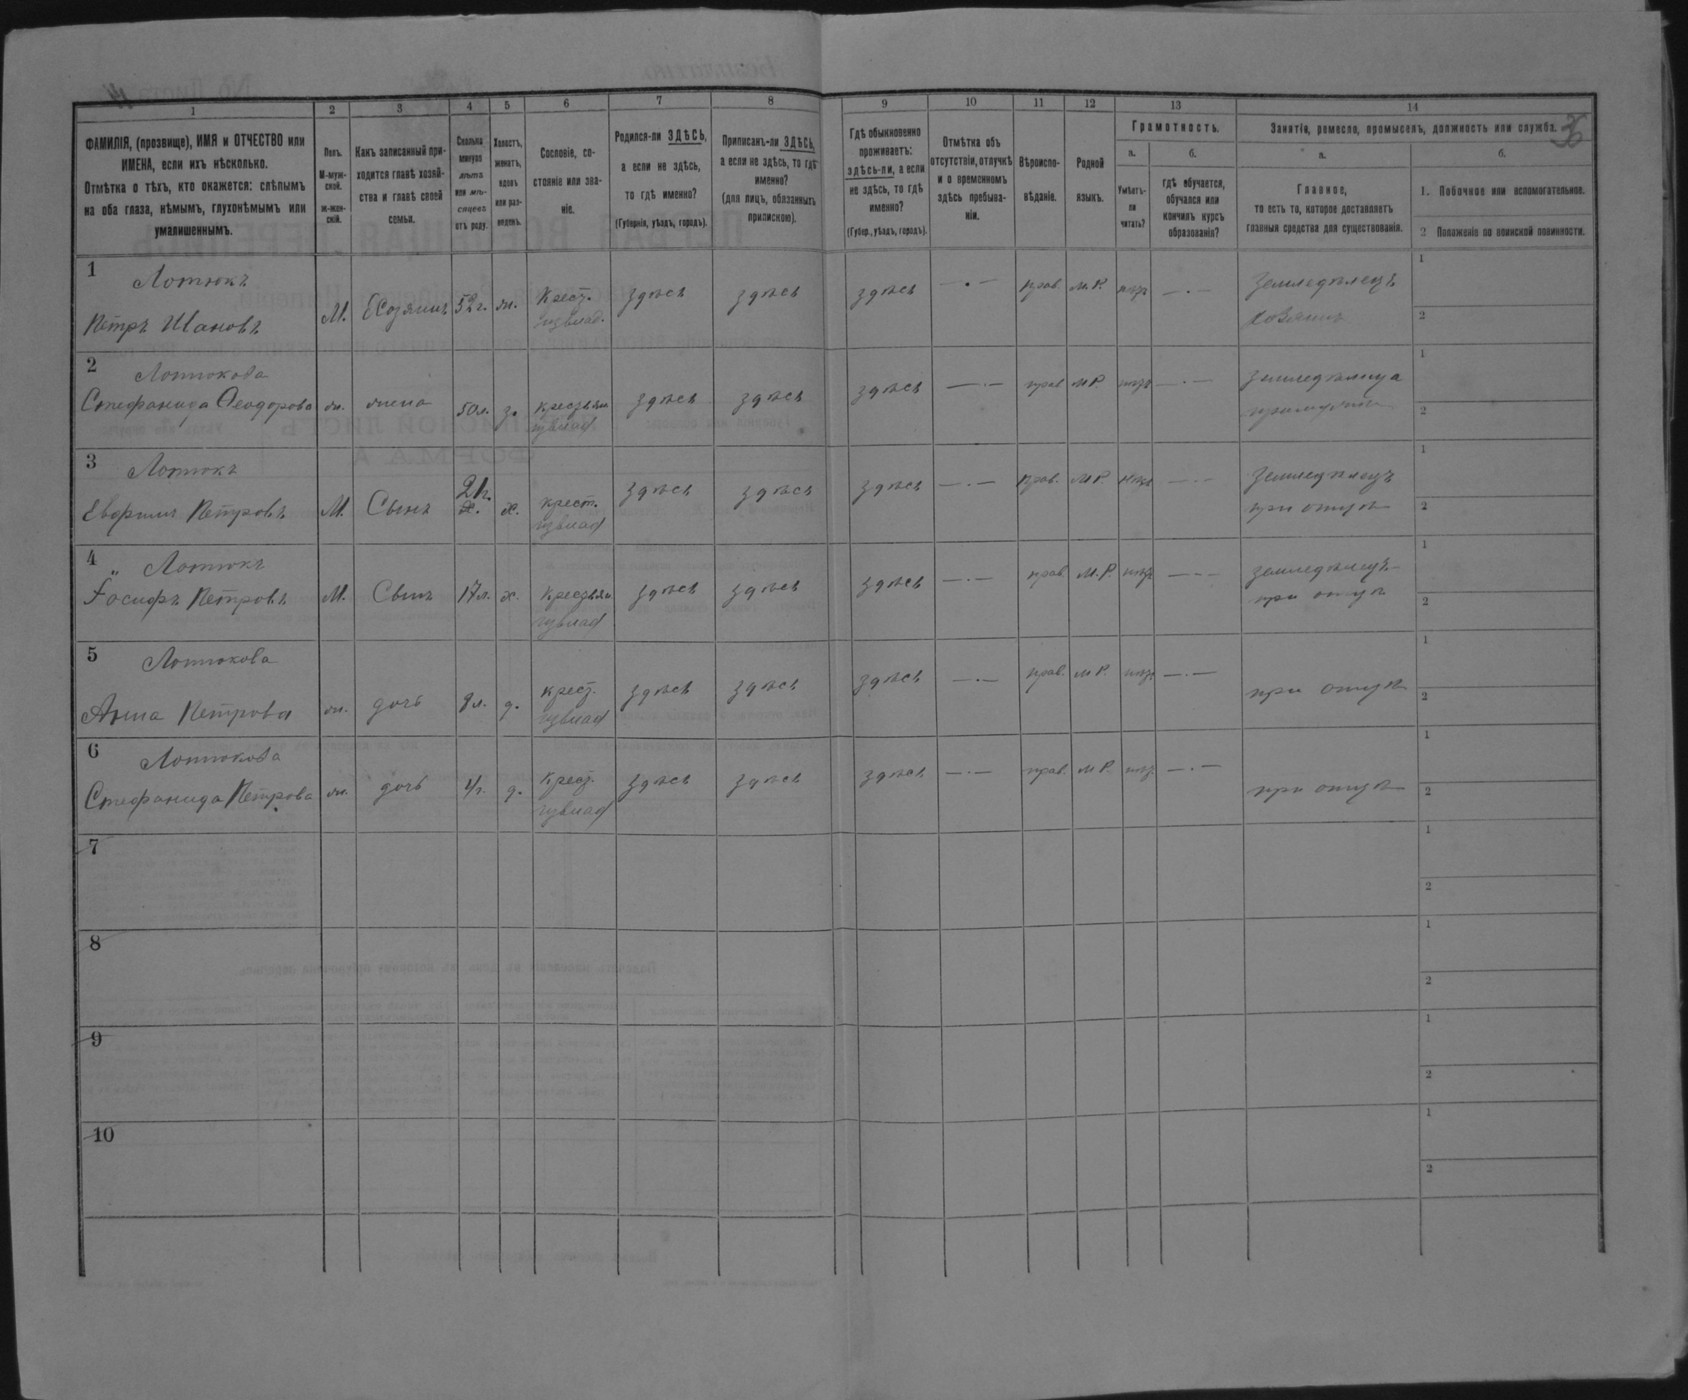 36
1 2 3 4 5 6 7 8 9 10 11 12 13 14
ФАМИЛІЯ, (прозвище), ИМЯ и ОТЧЕСТВО или
ИМЕНА, если ихъ нѣсколько.
Отмѣтка о тѣхъ, кто окажется: слѣпымъ
на оба глаза, нѣмымъ, глухонѣмымъ или
умалишеннымъ.
Полъ.
М-муж-
ской.
ж-жен-
скій.
Какъ записанный при-
ходится главѣ хозяй-
ства и главѣ своей
семьи.
Сколько
минуло
лѣтъ
или мѣ-
сяцевъ
отъ роду.
Холостъ,
женатъ,
вдовъ
или раз-
веденъ.
Сословіе, со-
стояніе или зва-
ніе.
Родился-ли ЗДѢСЬ,
а если не здѣсь,
то гдѣ именно?
(Губернія, уѣздъ, городъ).
Приписанъ-ли ЗДѢСЬ,
а если не здѣсь, то гдѣ
именно?
(для лицъ, обязанныхъ
припискою).
Гдѣ обыкновенно
проживаетъ:
здѣсь-ли, а если
не здѣсь, то гдѣ
именно?
(Губер., уѣздъ, городъ).
Отмѣтка объ
отсутствіи, отлучкѣ
и о временномъ
здѣсь пребыва-
ніи.
Вѣроиспо-
вѣданіе.
Родной
языкъ.
Грамотность.
а.
Умѣетъ-
ли
читать?
б.
гдѣ обучается,
обучался или
кончилъ курсъ
образованія?
Занятіе, ремесло, промыселъ, должность или служба.
а.
Главное,
то есть то, которое доставляетъ
главныя средства для существованія.
б.
1. Побочное или вспомогательное.
2 Положеніе по воинской повинности.
1 Лотюкъ
Петръ Ивановъ М. Хозяинъ 52 г. ж. Крест. здѣсь здѣсь здѣсь — . — прав. М.Р. Земледѣлецъ 1
хозяинъ 2
2 Лотюкова
Стефанида Ѳеодорова ж. жена 50 л. з. здѣсь здѣсь здѣсь — . — прав М Р. — . — Земледѣлица 1
2
3 Лотюкъ
Евфимъ Петровъ М. Сынъ 21 г. х. крест. здѣсь здѣсь здѣсь — . — прав. М Р. — . — Земледѣлецъ 1
при отцѣ 2
4 Лотюкъ
Іосифъ Петровъ М. Сынъ 17 л. х. здѣсь здѣсь здѣсь — . — прав. М.Р. — . — земледѣлецъ 1
при отцѣ 2
5 Лотюкова
Анна Петрова ж. дочь л. д. крест. здѣсь здѣсь здѣсь — . — прав. М Р. — . — при отцѣ 1
2
6 Лотюкова
Стефанида Петрова ж. дочь 4 г. д. крест. здѣсь здѣсь здѣсь — . — прав. М Р. — . — при отцѣ 1
2
7 1
2
8 1
2
9 1
2
10 1
2